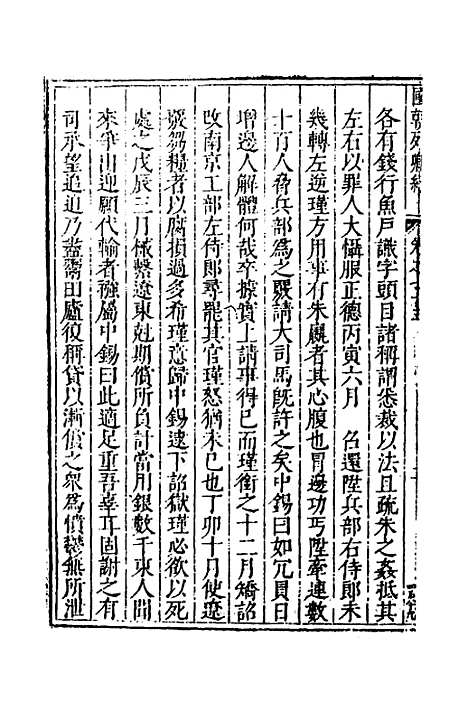 國朝列卿紀
各有錢行魚戶識字頭目諸稱謂悉裁以法且疏朱之姦抵其
左右以罪人大懾服正德丙寅六月 召還陞兵部右侍郎未
幾轉左逆瑾方用事有朱瀛者其心腹也冒邊功丐陞牽連數
十百人脅兵部為之覆請大司馬旣許之矣中錫曰如冗員日
增邊人解體何哉卒據實上請事得已而瑾銜之十二月矯詔
改南京工部左侍郎尋罷其官瑾怒猶未已也丁卯十月使遼
覈芻糧者以腐損過多希瑾意歸中錫逮下詔獄瑾必欲以死
處之戊辰三月械繫遼東尅期償所負計當用銀數千東人聞
來爭出迎願代輸者雜屬中錫曰此適足重吾辜耳固謝之有
司承望追迫乃盡鬻田廬復稱貸以漸償之衆為憤鬱無所泄